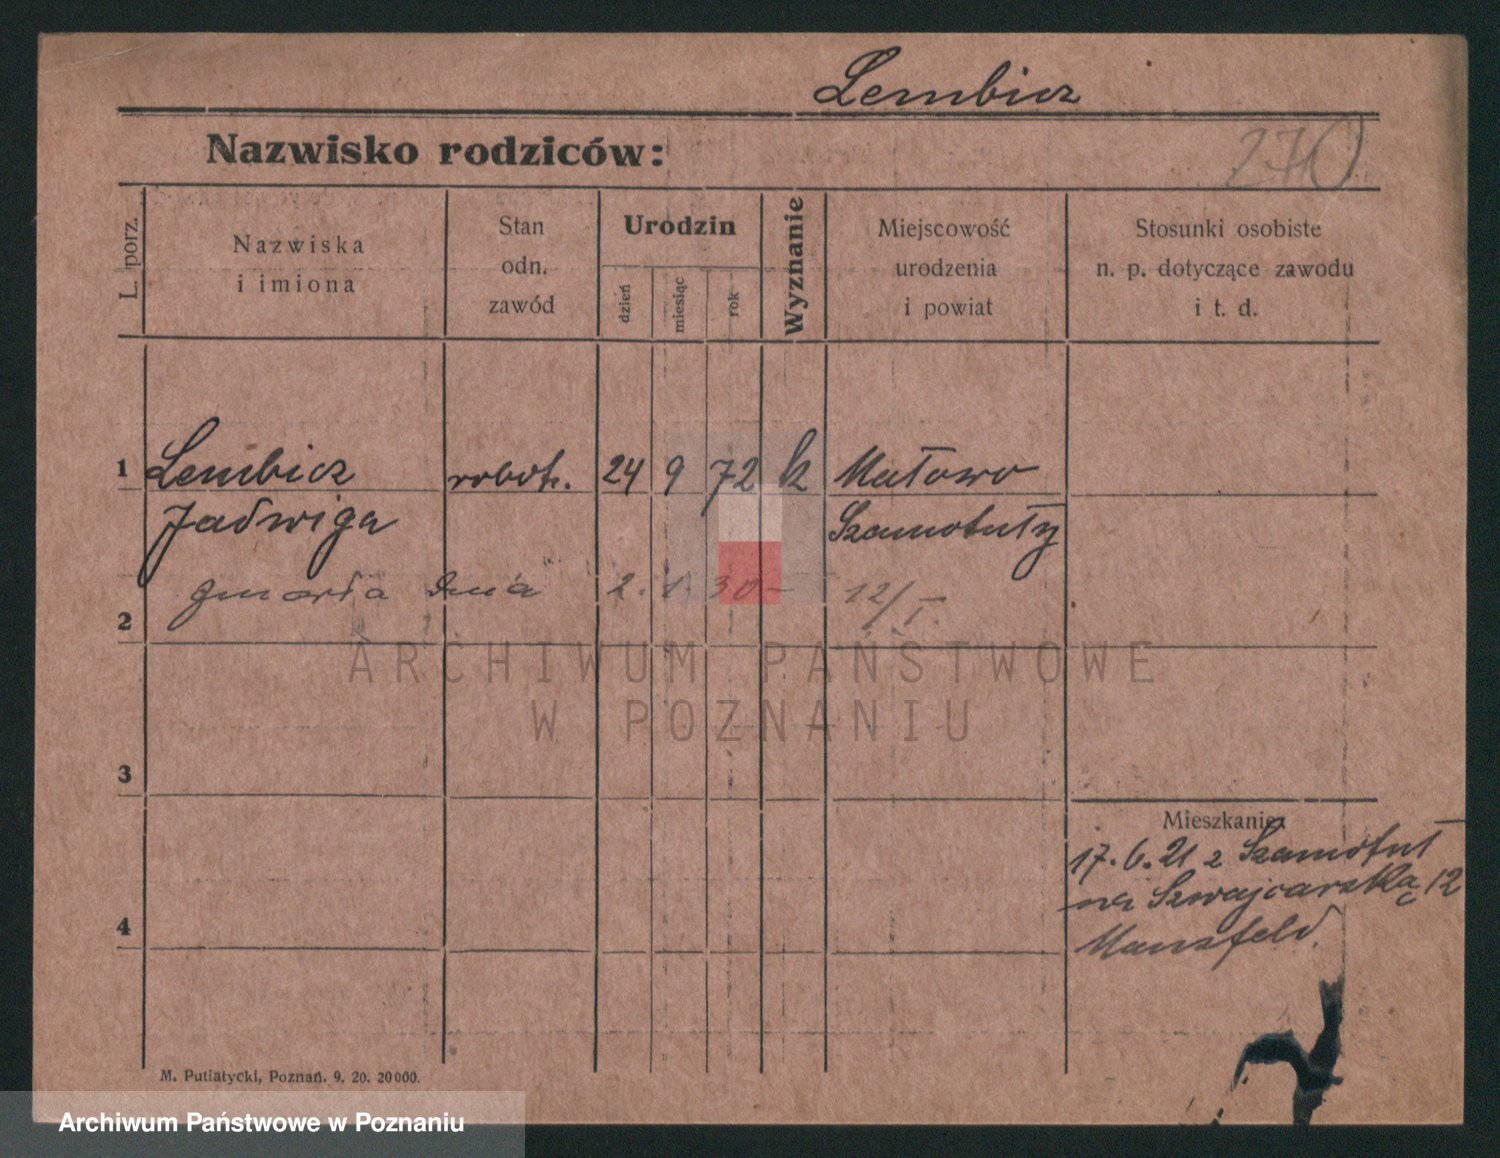 Lembicz
Nazwisko rodziców:
270
L. porz.
Nazwiska
i imiona
Stan
odn.
zawód
Urodzin
dzień
miesiąc
rok
Wyznanie
Miejscowość
urodzenia
i powiat
Stosunki osobiste
n. p. dotyczące zawodu
i t. d.
1 Lembicz robotn. 24 9 72 k Małowo
Jadwiga Szamotuły
zmarła dnia 2. 1. 30 - 12/I.
2
ARCHIWUM PAŃSTWOWE
W POZNANIU
3
Mieszkanie:
17. 6. 21 z Szamotuł
na Szwajcarską 12
Mansfeld.
4
M. Putiatycki, Poznań. 9. 20. 20000.
Archiwum Państwowe w Poznaniu